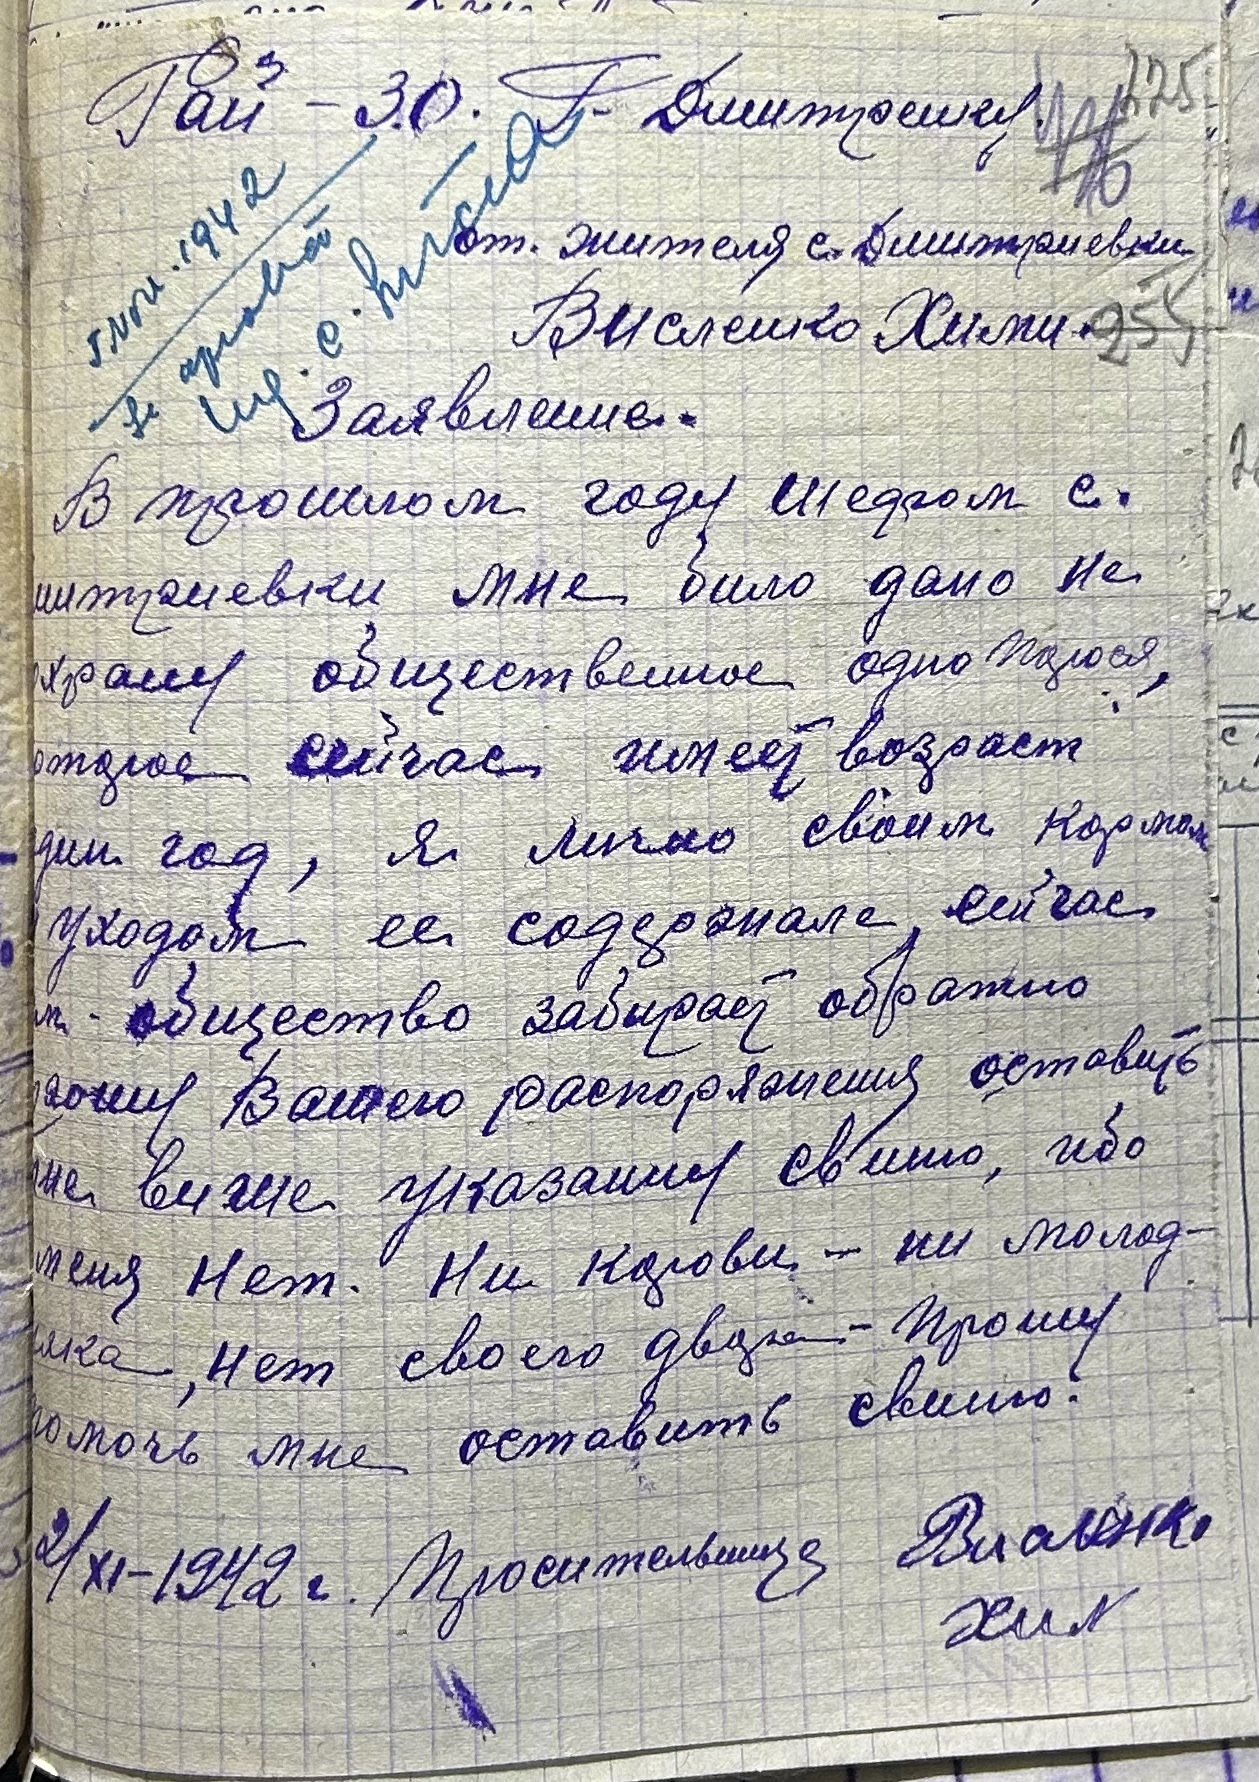 Рай - З.О. Г. Дмитренку.
225
255
5 Ноя. 1942
от. жителя с. Дмитриевки
Висленко Хими.
Заявление.
В прошлом году Шефом с.
митриевки мне било дано на
охрану общественное одно Порося,
оторое сейчас имеет возраст
дин год, я лично своим кормом
уходом ее содержала, сейчас
общество забирает обратно
рошу Вашего распоряжения оставить
мне више указанну свиню, ибо
меня Нет. Ни корови - ни молод-
няка, нет своего двора - Прошу
помочь мне оставить свиню.
2/XI-1942 г. Просительница Висленко
Хим